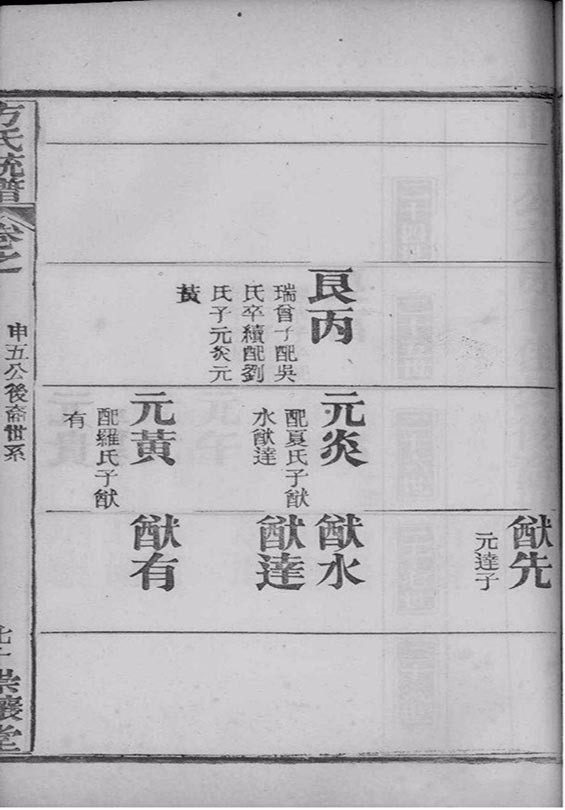 良丙
瑞曾子配吳
氏卒續配劉
氏子元炎元
黃
元炎
配夏氏子猷
水猷達
元黃
配羅氏子猷
有
猷先
元達子
猷水
猷達
猷有
方氏統譜
卷之
申五公後裔世系
堂